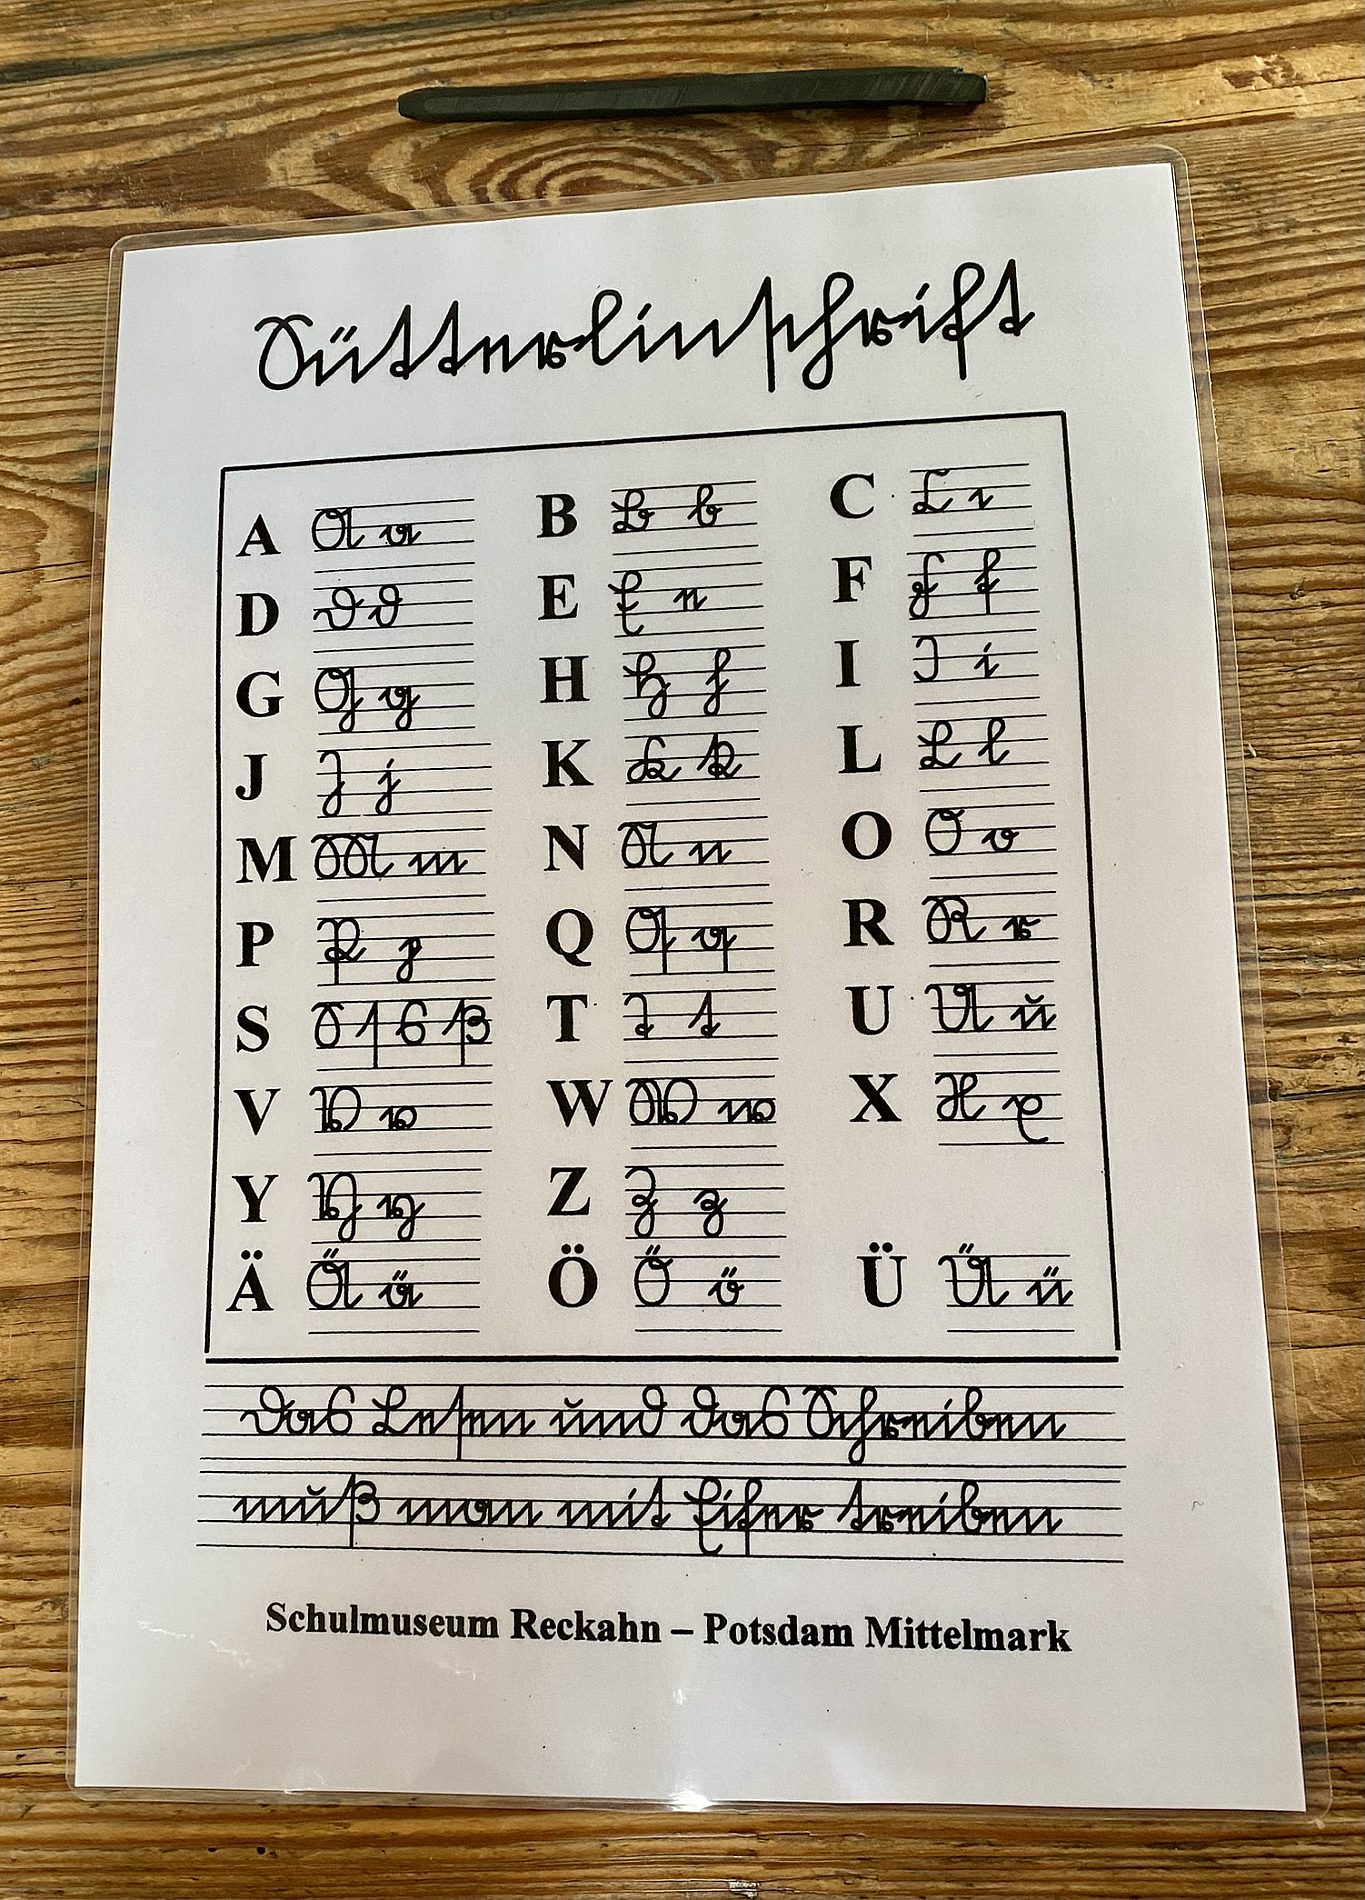 Sütterlinschrift
A A a B B b C C c
D D d E E e F F f
G G g H H h I I i
J J j K K k L L l
M M m N N n O O o
P P p Q Q q R R r
S S ſ s ß T T t U U u
V V v W W w X X x
Y Y y Z Z z
Ä Ä ä Ö Ö ö Ü Ü ü
Das Leſen und das Schreiben
muß man mit Eifer treiben
Schulmuseum Reckahn – Potsdam Mittelmark